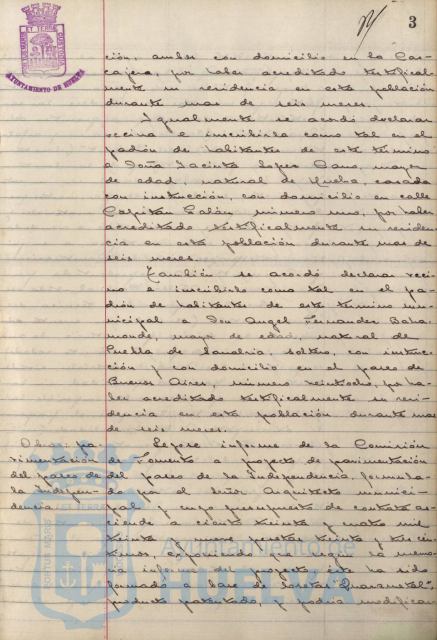 3
AYUNTAMIENTO DE HUELVA
ción, ambos con domicilio en la Cas-
cajera, por haber acreditado testifical-
mente su residencia en esta población
durante mas de seis meses.
Igualmente se acordó declarar
vecina e inscribirla como tal en el
padrón de habitantes de este término
a Doña Jacinta Lopez Cano, mayor
de edad, natural de Huelva, casada
con instrucción, con domicilio en calle
Capitan Galán número uno, por haber
acreditado testificalmente su residen-
cia en esta población durante mas de
seis meses.
También se acordó declarar veci-
no e inscribirlo como tal en el pa-
drón de habitantes de este término mu-
nicipal a Don Angel Fernandez Baha-
monde, mayor de edad, natural de
Puebla de Sanabria, soltero, con instruc-
ción y con domicilio en el paseo de
Buenos Aires, número veintiocho, por ha-
ber acreditado testificalmente su resi-
dencia en esta población durante mas
de seis meses.
Obras pa-
vimentación
del paseo de
la Indepen-
dencia.
informe de la Comisión
de Fomento a proyecto de pavimentación
del paseo de la Independencia, formula-
do por el señor Arquitecto munici-
pal y cuyo presupuesto de contrata as-
ciende a ciento treinta y cuatro mil
treinta y nueve pesetas treinta y tres cén-
timos, exponiendo que según la memo-
ria informe del proyecto este ha sido
formado a base de losetas
producto patentado, y podria modificar
Ayuntamiento de
HUELVA